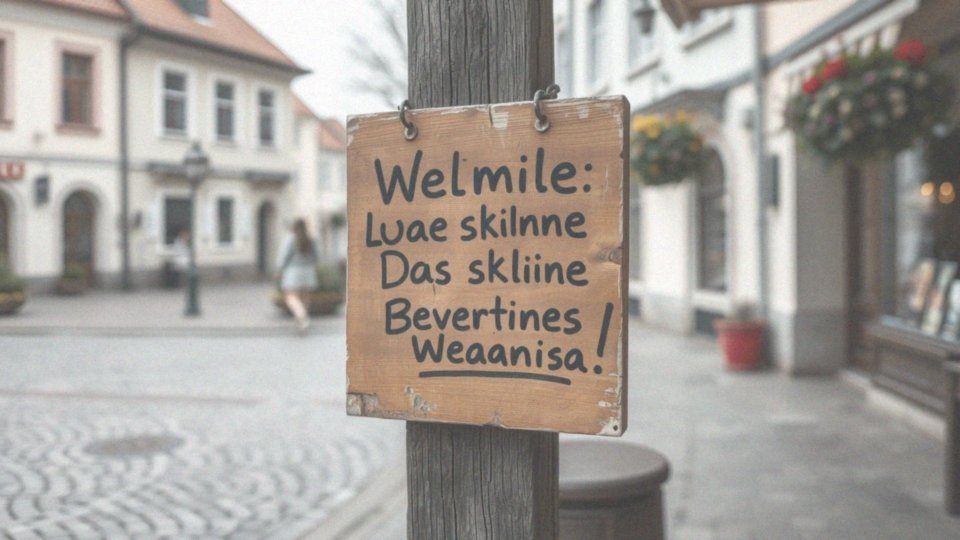 Welmile:
Luae skilnne
Das skliine
Bevertines
Weaanisa!